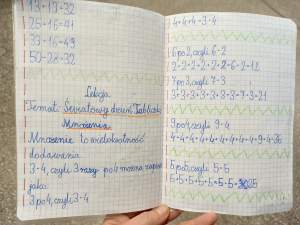 13+19=32
25+16=41
33+16=49
50-28=32
Lekcja
Temat: Światowy dzień Tabliczki
Mnożenia
Mnożenie to wielokrotność
dodawania
3·4, czyli 3 razy po 4 można zapisać
jako
3 po 4, czyli 3·4
4+4+4=3·4
6 po 2, czyli 6·2
2+2+2+2+2+2=6·2=12
7 po 3, czyli 7·3
3+3+3+3+3+3+3=7·3=21
9 po 4, czyli 9·4
4+4+4+4+4+4+4+4+4=9·4=36
5 po 5, czyli 5·5